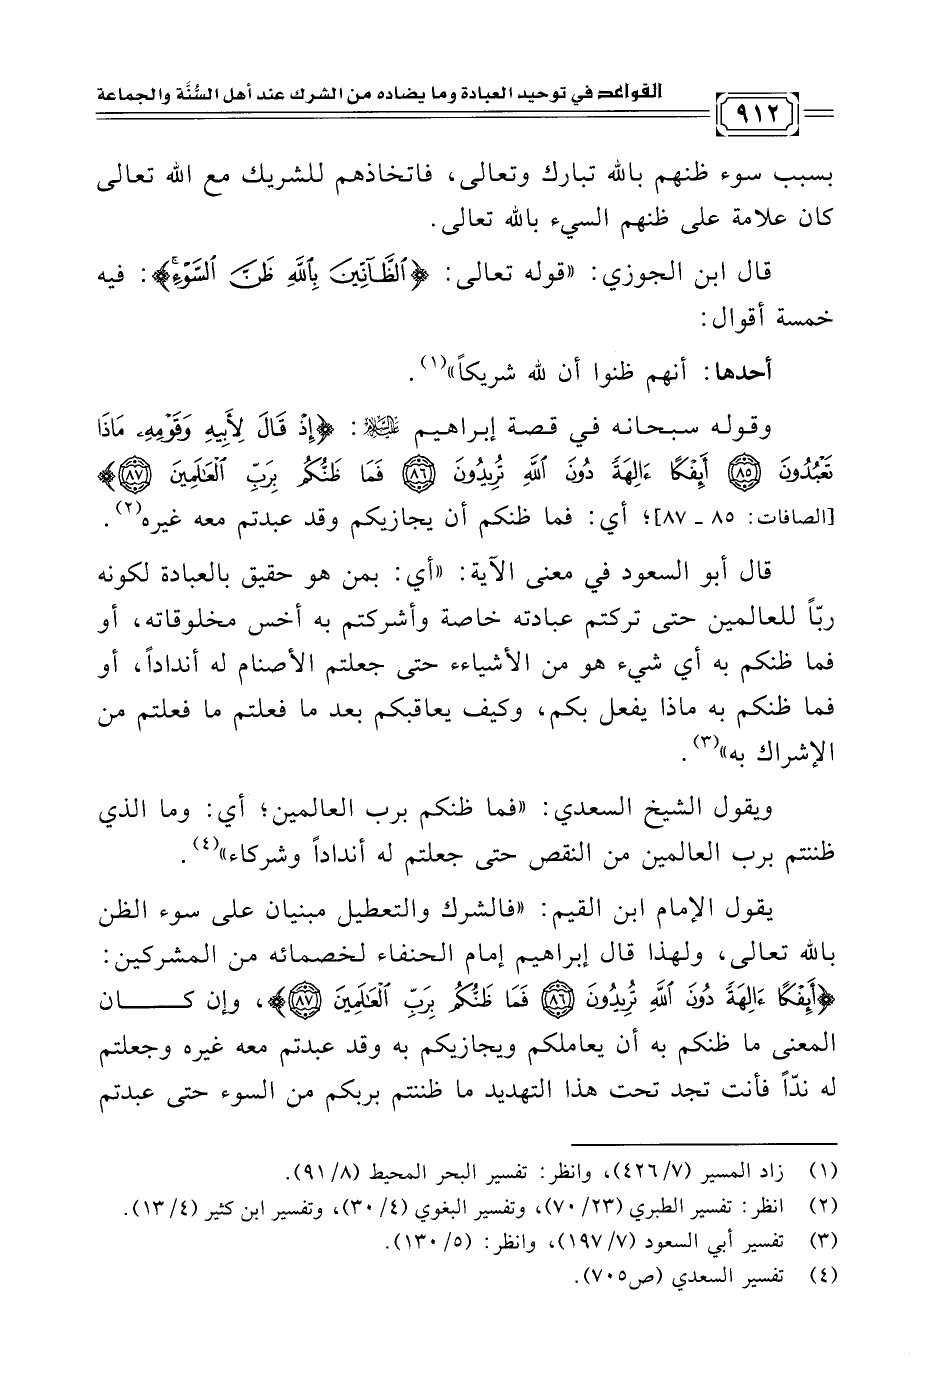 القواعد في توحيد العبادة وما يضاده من الشرك عند أهل السُّنَّة والجماعة
٩١٢
بسبب سوء ظنهم بالله تبارك وتعالى، فاتخاذهم للشريك مع الله تعالى
كان علامة على ظنهم السيء بالله تعالى.
قال ابن الجوزي: «قوله تعالى: ﴿ٱلظَّآنِّينَ بِٱللَّهِ ظَنَّ ٱلسَّوْءِۚ﴾: فيه
خمسة أقوال:
أحدها: أنهم ظنوا أن لله شريكاً»(١).
وقوله سبحانه في قصة إبراهيم عليه السلام: ﴿إِذْ قَالَ لِأَبِيهِ وَقَوْمِهِۦ مَاذَا
تَعْبُدُونَ ٨٥ أَئِفْكًا ءَالِهَةً دُونَ ٱللَّهِ تُرِيدُونَ ٨٦ فَمَا ظَنُّكُم بِرَبِّ ٱلْعَٰلَمِينَ ٨٧﴾
[الصافات: ٨٥ ـ ٨٧]؛ أي: فما ظنكم أن يجازيكم وقد عبدتم معه غيره(٢).
قال أبو السعود في معنى الآية: «أي: بمن هو حقيق بالعبادة لكونه
ربّاً للعالمين حتى تركتم عبادته خاصة وأشركتم به أخس مخلوقاته، أو
فما ظنكم به أي شيء هو من الأشياءء حتى جعلتم الأصنام له أنداداً، أو
فما ظنكم به ماذا يفعل بكم، وكيف يعاقبكم بعد ما فعلتم ما فعلتم من
الإشراك به»(٣).
ويقول الشيخ السعدي: «فما ظنكم برب العالمين؛ أي: وما الذي
ظننتم برب العالمين من النقص حتى جعلتم له أنداداً وشركاء»(٤).
يقول الإمام ابن القيم: «فالشرك والتعطيل مبنيان على سوء الظن
بالله تعالى، ولهذا قال إبراهيم إمام الحنفاء لخصمائه من المشركين:
﴿أَئِفْكًا ءَالِهَةً دُونَ ٱللَّهِ تُرِيدُونَ ٨٦ فَمَا ظَنُّكُم بِرَبِّ ٱلْعَٰلَمِينَ ٨٧﴾، وإن كـــــان
المعنى ما ظنكم به أن يعاملكم ويجازيكم به وقد عبدتم معه غيره وجعلتم
له ندّاً فأنت تجد تحت هذا التهديد ما ظننتم بربكم من السوء حتى عبدتم
(١) زاد المسير (٧/ ٤٢٦)، وانظر: تفسير البحر المحيط (٨/ ٩١).
(٢) انظر: تفسير الطبري (٢٣/ ٧٠)، وتفسير البغوي (٤/ ٣٠)، وتفسير ابن كثير (٤/ ١٣).
(٣) تفسير أبي السعود (٧/ ١٩٧)، وانظر: (٥/ ١٣٠).
(٤) تفسير السعدي (ص٧٠٥).